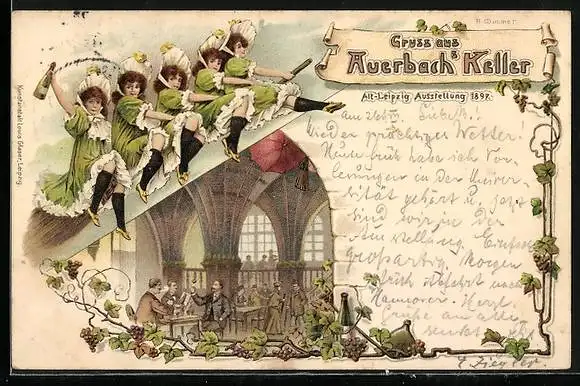 R. Wimmer
Gruss aus
Auerbach's Keller
Alt-Leipzig Ausstellung 1897.
Kunstanstalt Louis Glaser, Leipzig.
am 26/
Wieder prächtiges Wetter!
Heute früh habe ich Vor-
lesungen in der Univer-
sität gehört u. jetzt
sind wir in der
Ausstellung.
großartig. Morgen
früh Abfahrt nach
Hannover. Herzl.
Grüße an alle
sendet
E. Ziegler.